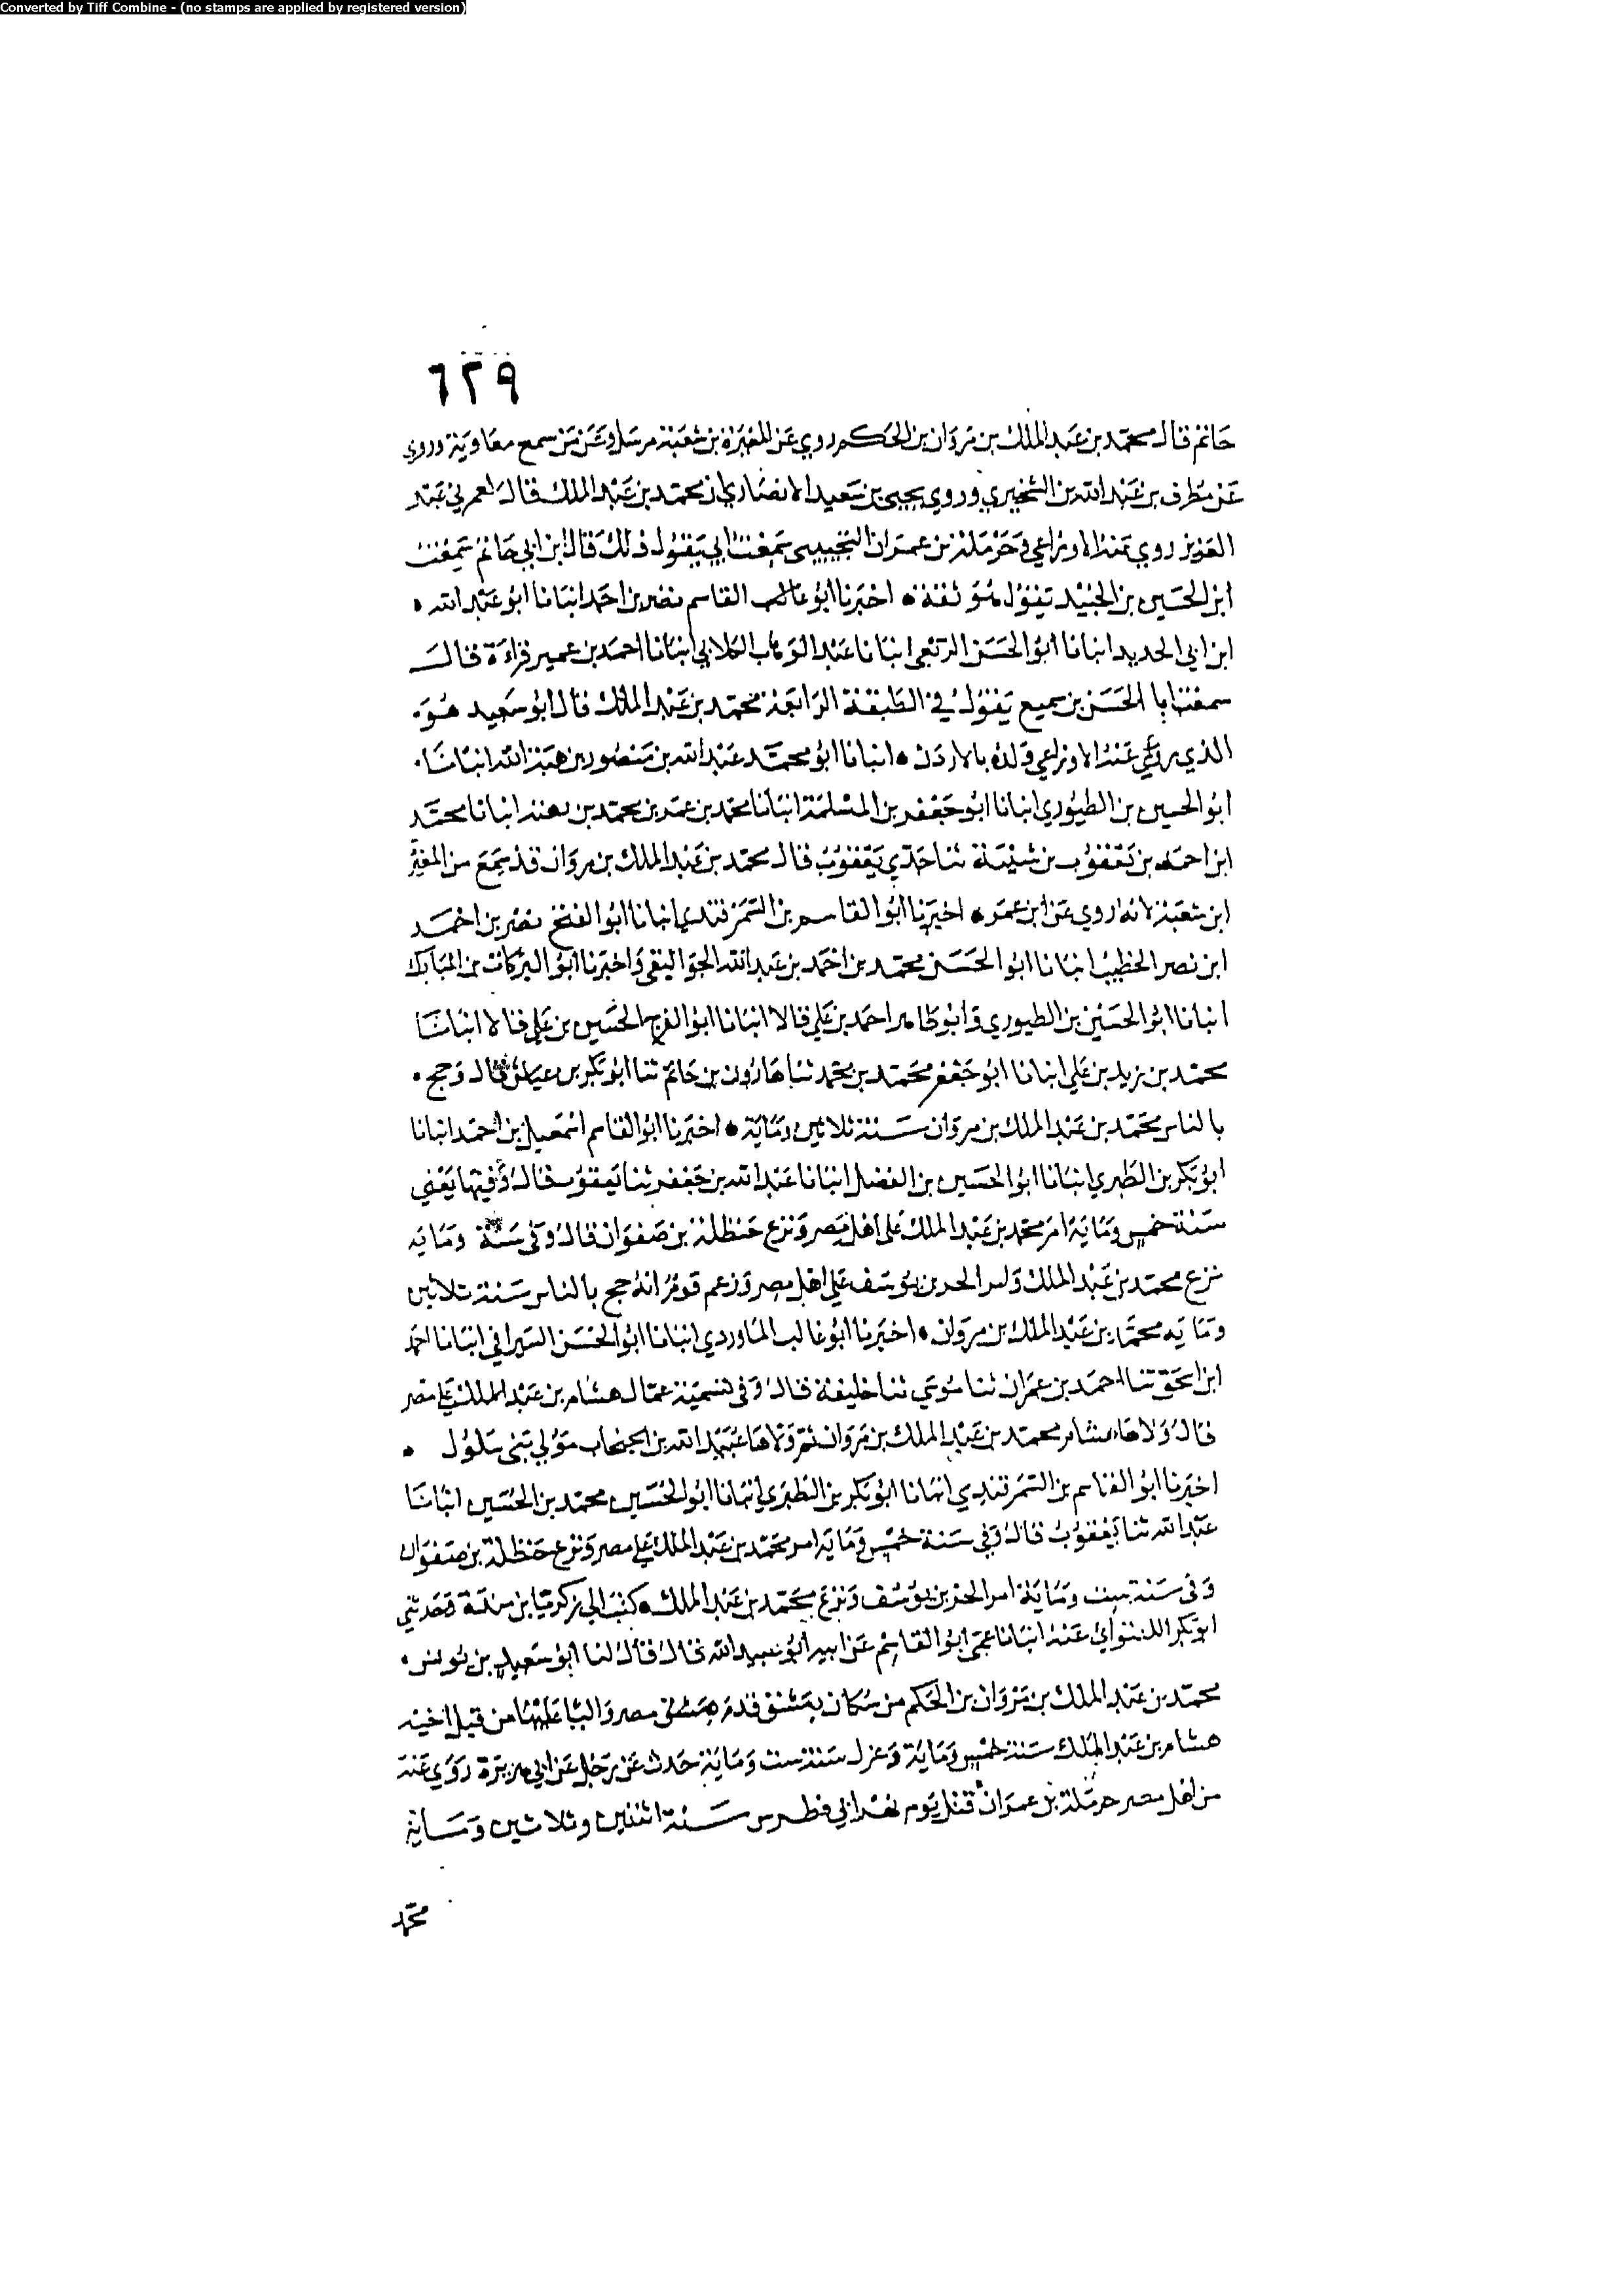 Converted by Tiff Combine - (no stamps are applied by registered version)
٦٢٩
حاتم قال محمد بن عبد الملك بن مروان بن الحكم روي عن المغيرة بن شعبة مرسل وعن من سمع معاوية وروي
عن مطرف بن عبد الله بن الشخير وروي يحيى بن سعيد الانصاري ان محمد بن عبد الملك قال لعمر بن عبد
العزيز روي عنه الاوزاعي وحرملة بن عمران التجيبي سمعت ابي يقول ذلك قال ابن ابي حاتم سمعت
ابن الحسين بن الجنيد يقول هو ثقة • اخبرنا ابو غالب القاسم نصر بن احمد انبانا ابو عبد الله •
ابن ابي الحديد انبانا ابو الحسن الربعي انبانا عبد الوهاب الكلابي انبانا احمد بن عمير قراءة قال
سمعت ابا الحسن بن سميع يقول في الطبقة الرابعة محمد بن عبد الملك قال ابو سعيد هو •
الذي روي عنه الاوزاعي ولده بالاردن • انبانا ابو محمد عبد الله بن منصور بن هبة الله انبانا •
ابو الحسين بن الطيوري انبانا ابو جعفر بن المسلمة انبانا محمد بن عمر بن محمد بن بهته انبانا محمد
ابن احمد بن يعقوب بن شيبة ثنا جدي يعقوب قال محمد بن عبد الملك بن مروان قد سمع من المغيرة
ابن شعبة لانه روي عن ابن عمر • اخبرنا ابو القاسم بن السمرقندي انبانا ابو الفتح نصر بن احمد
ابن نصر الخطيب انبانا ابو الحسن محمد بن احمد بن عبد الله الجواليقي واخبرنا ابو البركات بن المبارك
انبانا ابو الحسين بن الطيوري وابو طاهر احمد بن علي قالا انبانا ابو الفرج الحسين بن علي قالا انبانا
محمد بن زيد بن علي انبانا ابو جعفر محمد بن محمد ثنا هارون بن حاتم ثنا ابو بكر بن عياش قال وحج •
بالناس محمد بن عبد الملك بن مروان سنة ثلاثين وماية • اخبرنا ابو القاسم اسمعيل بن احمد انبانا
ابو بكر بن الطبري انبانا ابو الحسين بن الفضل انبانا عبد الله بن جعفر ثنا يعقوب قال وفيها يعني
سنة خمس وماية امر محمد بن عبد الملك على اهل مصر ونزع حنظلة بن صفوان قال وفي سنة وماية
نزع محمد بن عبد الملك الحر بن يوسف على اهل مصر وزعم قوم انه حج بالناس سنة ثلاثين
وماية محمد بن عبد الملك بن مروان • اخبرنا ابو غالب الماوردي انبانا ابو الحسن السيرافي انبانا احمد
ابن اسحق ثنا احمد بن عمران ثنا موسي ثنا خليفة قال وفي تسمية عمال هشام بن عبد الملك علي مصر
قال ولاها هشام محمد بن عبد الملك بن مروان ثم ولاها عبيد الله بن الحبحاب مولي بني سلول •
اخبرنا ابو القاسم بن السمرقندي انبانا ابو بكر بن الطبري انبانا ابو الحسين محمد بن الحسين انبانا
عبد الله ثنا يعقوب قال وفي سنة خمس وماية امر محمد بن عبد الملك علي مصر ونزع حنظلة بن صفوان
وفي سنة ست وماية امر الحر بن يوسف ونزع محمد بن عبد الملك • كتب الي ابو زكريا بن مندة وحدثني
ابو بكر اللفتواني عنه انبانا عمي ابو القاسم عن ابيه ابو عبد الله قال قال لنا ابو سعيد بن يونس •
محمد بن عبد الملك بن مروان بن الحكم من سكان دمشق قدم مصر واليا عليها من قبل اخيه
هشام بن عبد الملك سنة خمس وماية وعزل سنة ست وماية حدث عن رجل عن ابي هريرة روي عنه
من اهل مصر حرملة بن عمران قتل يوم نهر ابي فطرس سنة اثنين وثلاثين وماية
محمد